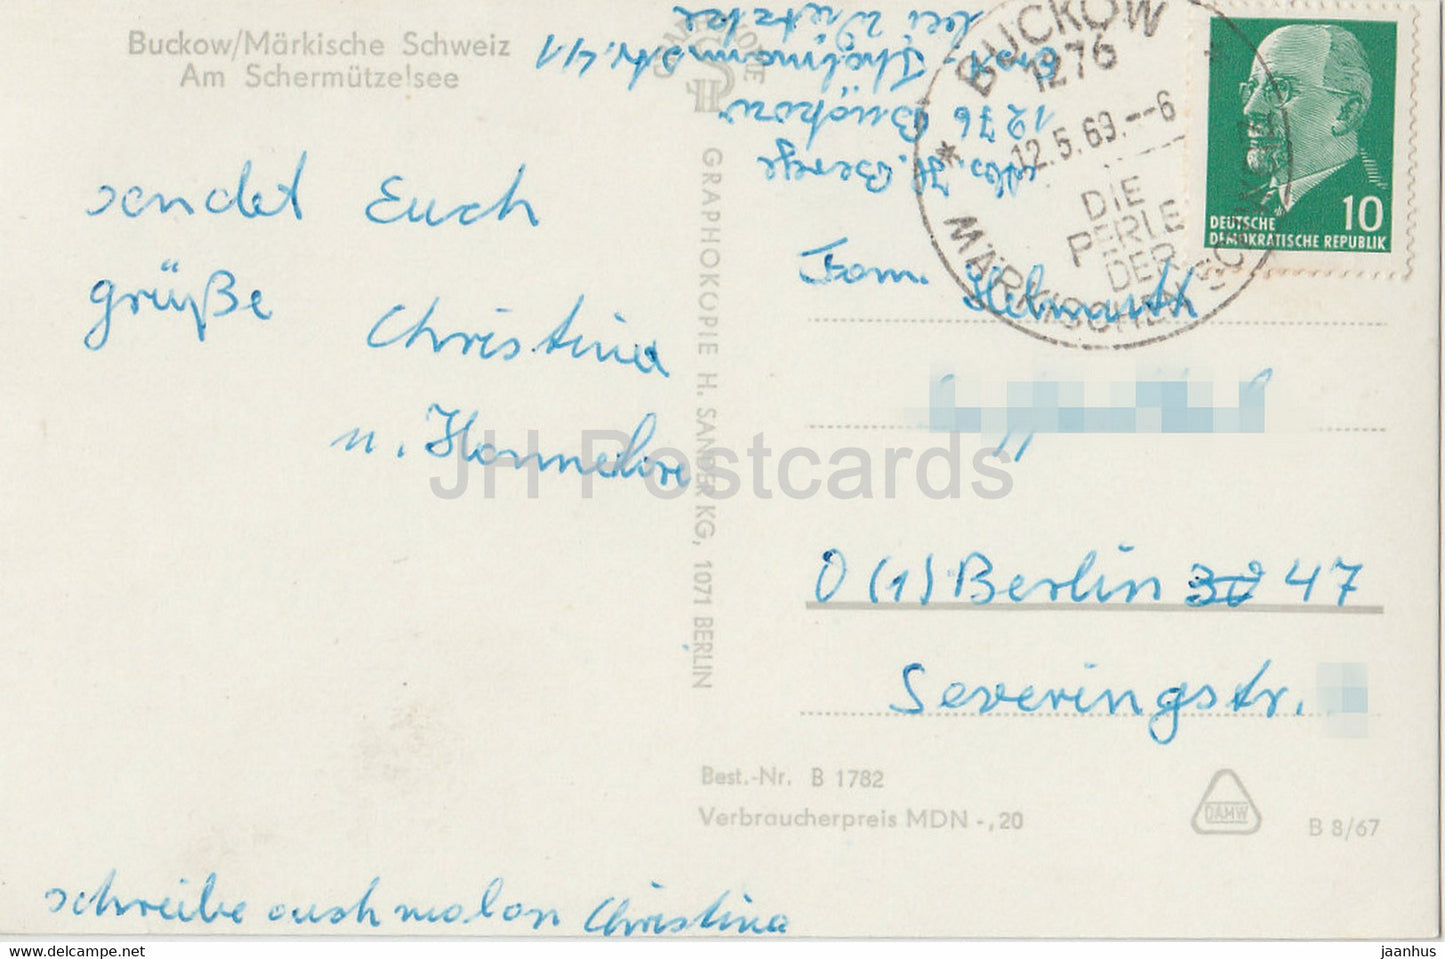 Buckow/Märkische Schweiz
Am Schermützelsee
sendet Euch
grüße
Christina
u. Hannelore
schreibe auch mal an Christina
GRAPHOKOPIE H. SANDER KG, 1071 BERLIN
Abs. H. Berge
1276 Buckow
Ernst-Thälmannstr. 41
bei
BUCKOW
1276
12.5.69.--6
DIE
PERLE
DER
MÄRKISCHEN SCHWEIZ
10
DEUTSCHE
DEMOKRATISCHE REPUBLIK
Fam.
O (1) Berlin 47
Severingstr.
Best.-Nr. B 1782
Verbraucherpreis MDN -,20
DAMW
B 8/67
JH Postcards
www.delcampe.net
jaanhus